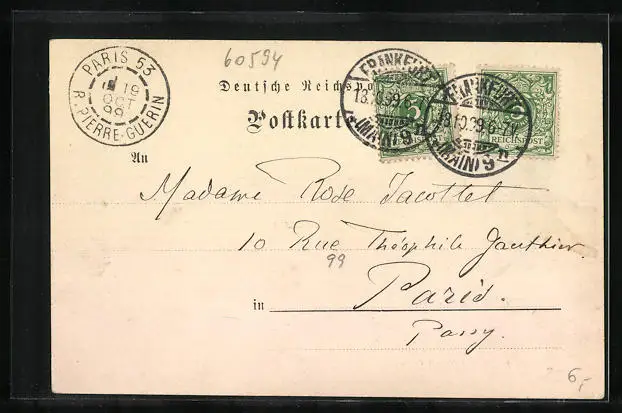 60594
PARIS 53
19
OCT
99
R. PIERRE-GUERIN
Deutsche Reichspo
Postkart
FRANKFURT
18.10.99.6-7
(MAIN) 9
FRANKFURT
18.10.99.6-7V
(MAIN) 9
5
REICHSPOST
An
Madame Rose Jacottet
10 Rue Théophile Gauthier.
99
in Paris.
Passy.
6,-